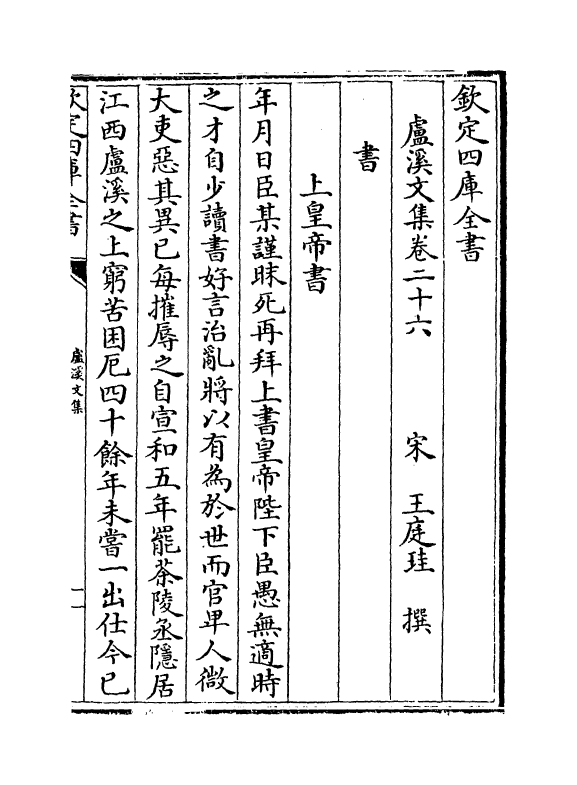 欽定四庫全書
盧溪文集卷二十六　　　宋　王庭珪　撰
書
上皇帝書
年月日臣某謹昧死再拜上書皇帝陛下臣愚無適時
之才自少讀書好言治亂將以有為於世而官卑人微
大吏惡其異已每摧辱之自宣和五年罷茶陵丞隱居
江西盧溪之上窮苦困厄四十餘年未嘗一出仕今已
欽定四庫全書
盧溪文集